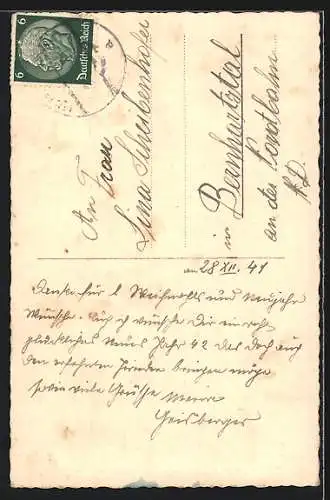 6 Deutsches Reich 6
An Frau
Lina Scheibenhofer
in Bernhartsthal
an der Nordbahn
N.D.
am 28 XII. 41
Danke für l Weihnachts und Neujahrs
Wünsche. Auch ich wünsche Dir ein recht
glückliches neues Jahr 42 das doch auch
den ersehnten Frieden bringen möge
sowie viele Grüsse
Geisberger